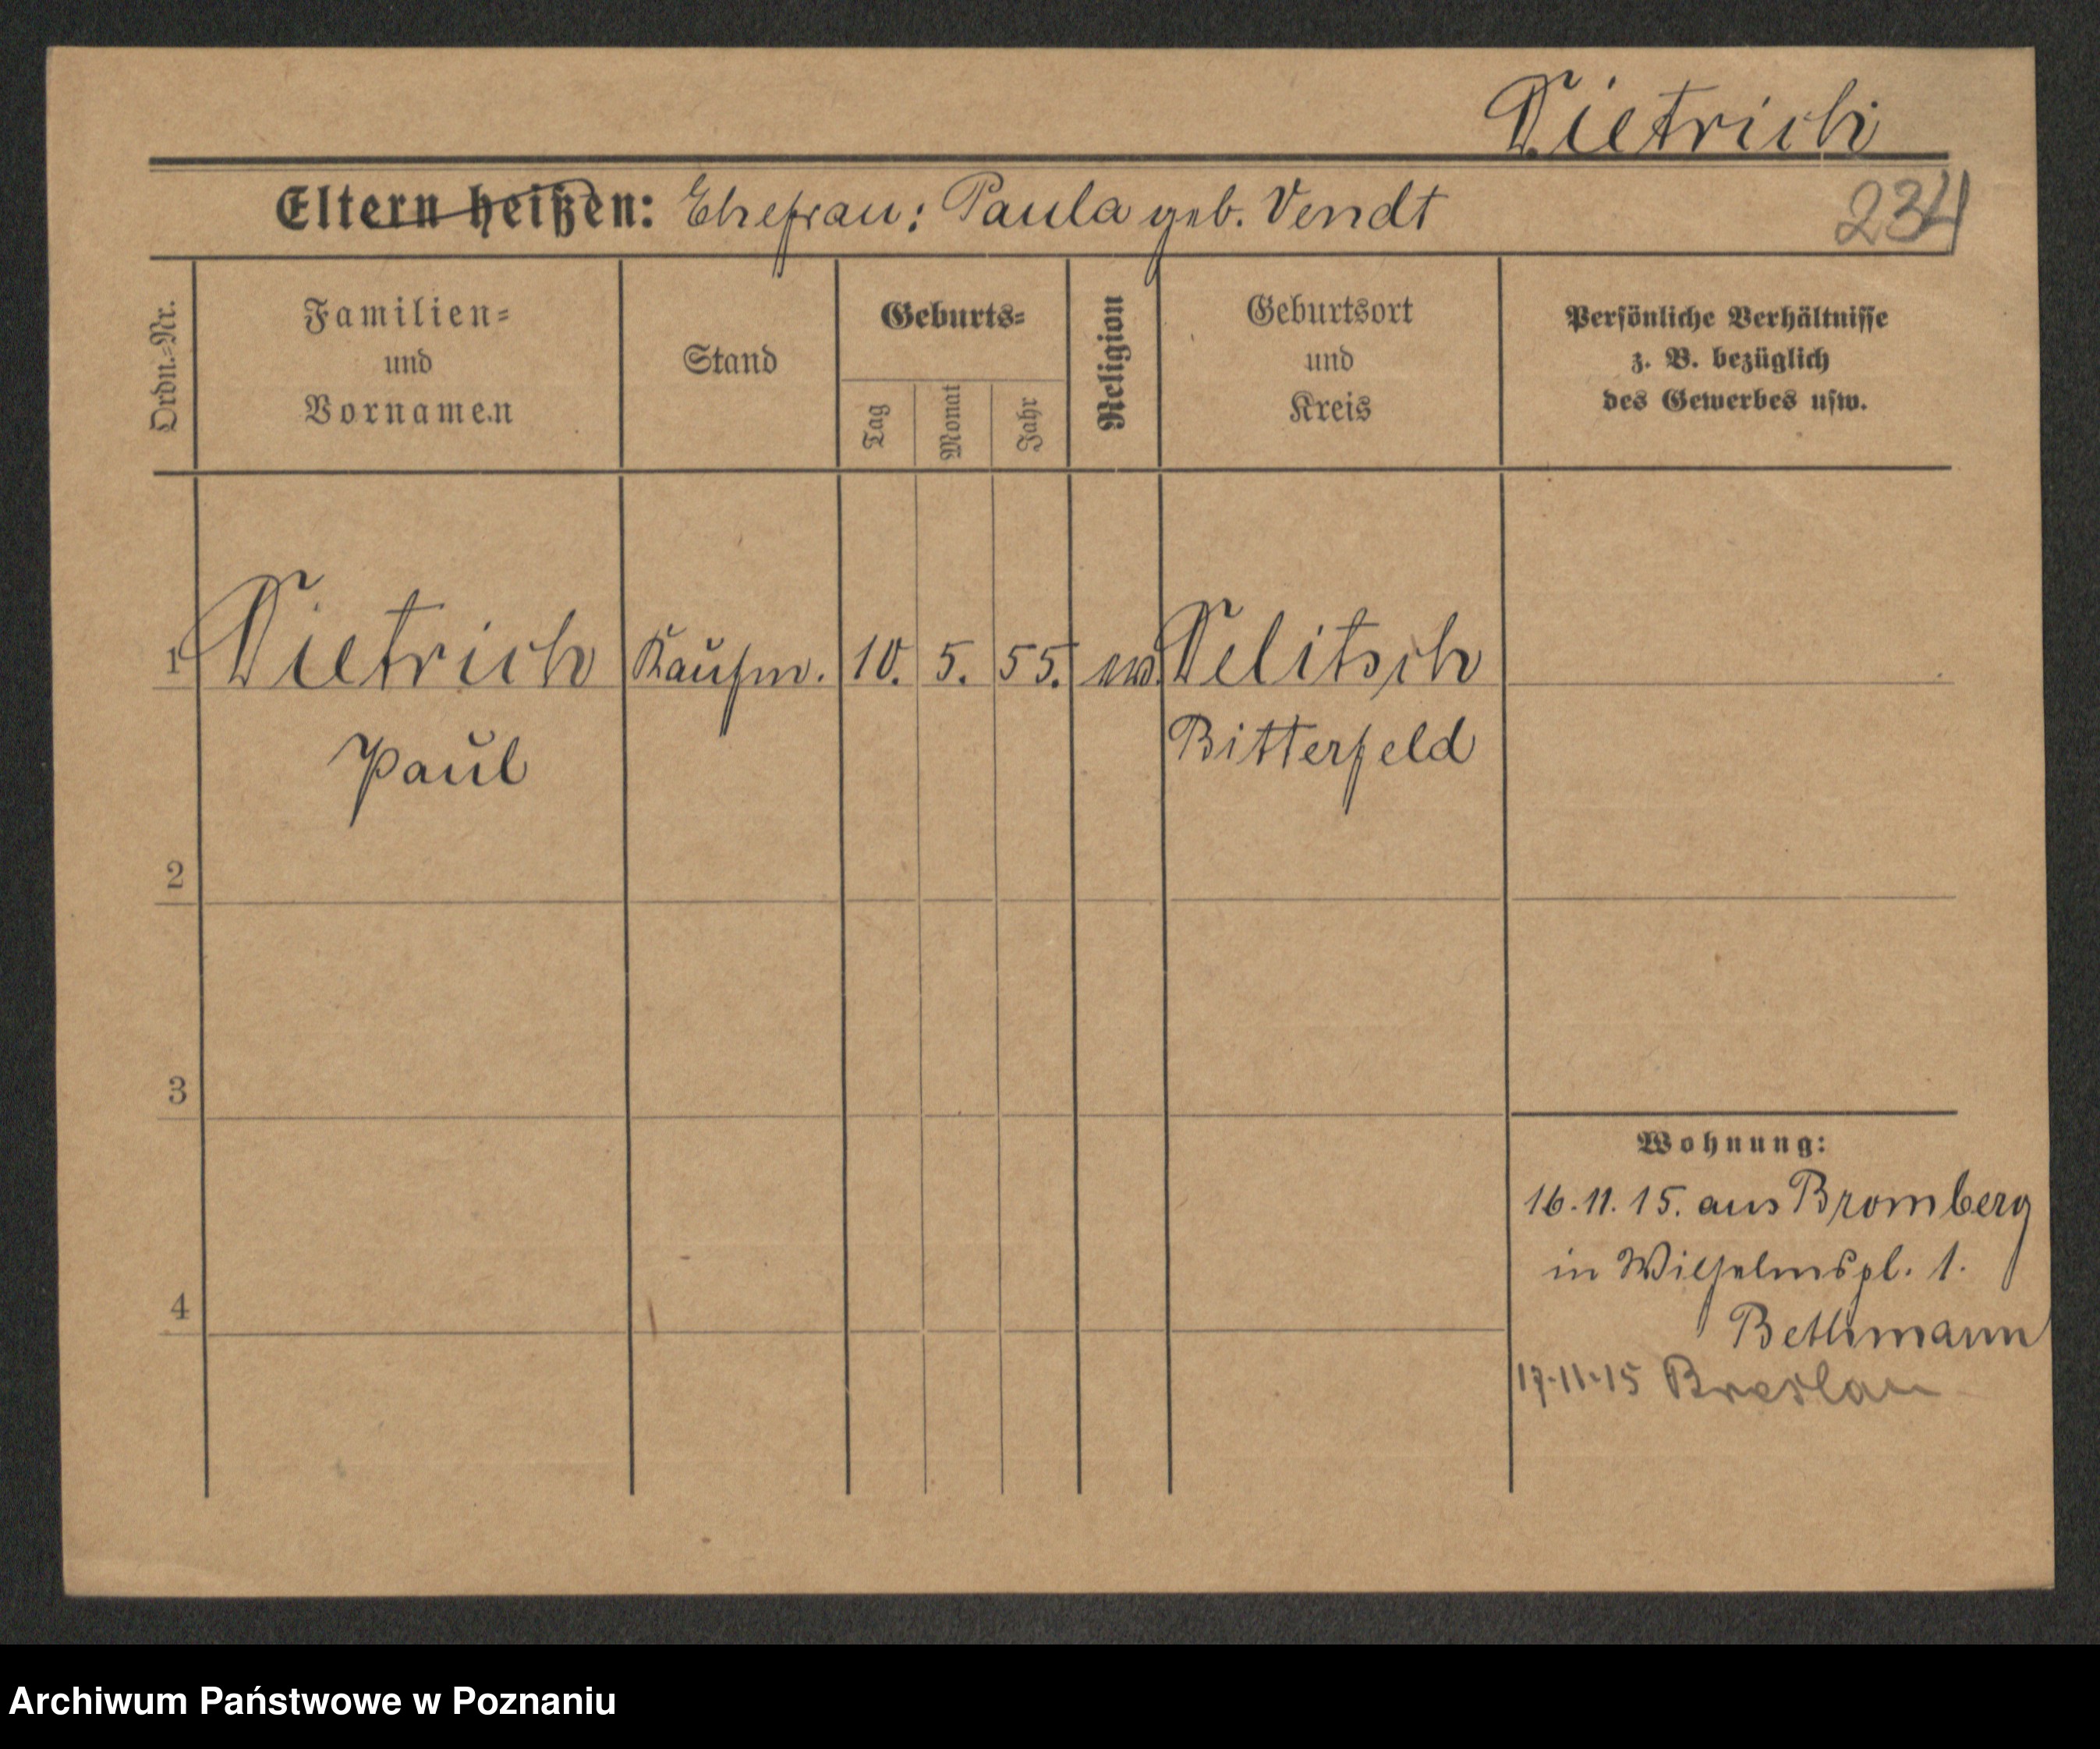 Dietrich
Eltern heißen: Ehefrau: Paula geb. Vendt
234
Ordn.-Nr.
Familien-
und
Vornamen
Stand
Geburts-
Tag
Monat
Jahr
Religion
Geburtsort
und
Kreis
Persönliche Verhältnisse
z. B. bezüglich
des Gewerbes usw.
1 Dietrich Kaufm. 10. 5. 55. Delitsch
Paul Bitterfeld
2
3
4
Wohnung:
16.11.15. aus Bromberg
in Wilhelmspl. 1.
Bethmann
17-11-15 Breslau
Archiwum Państwowe w Poznaniu